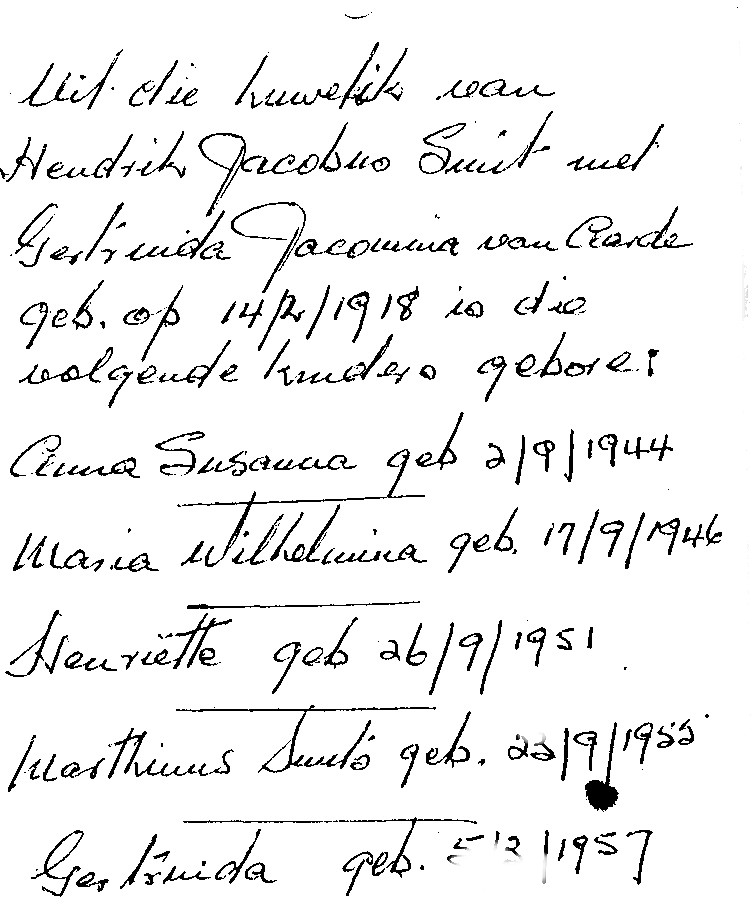 Uit die huwelik van
Hendrik Jacobus Smit met
Gertruida Jacomina van Aarde
geb. op 14/2/1918 is die
volgende kinders gebore:
Anna Susanna geb 2/9/1944
Maria Wilhelmina geb. 17/9/1946
Henriëtte geb 26/9/1951
Marthinus Smits geb. 23/9/1955
Gertruida geb. 5/2/1957